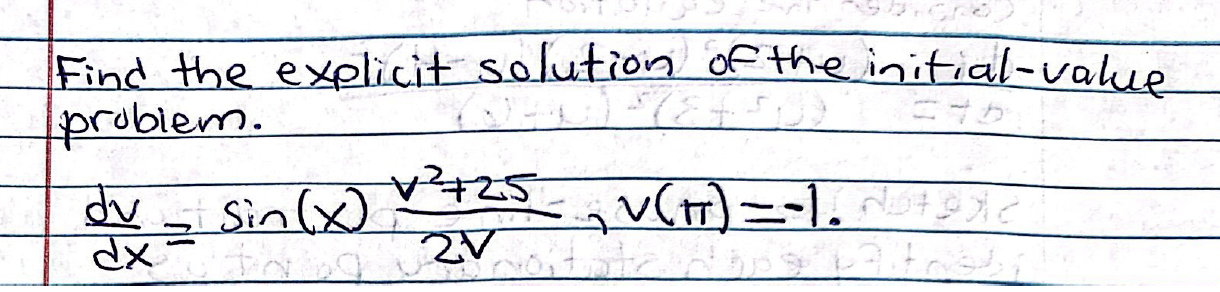 Find the explicit solution of the initial-value
problem.
dv/dx = sin(x) (v²+25)/(2v), v(π)=-1.